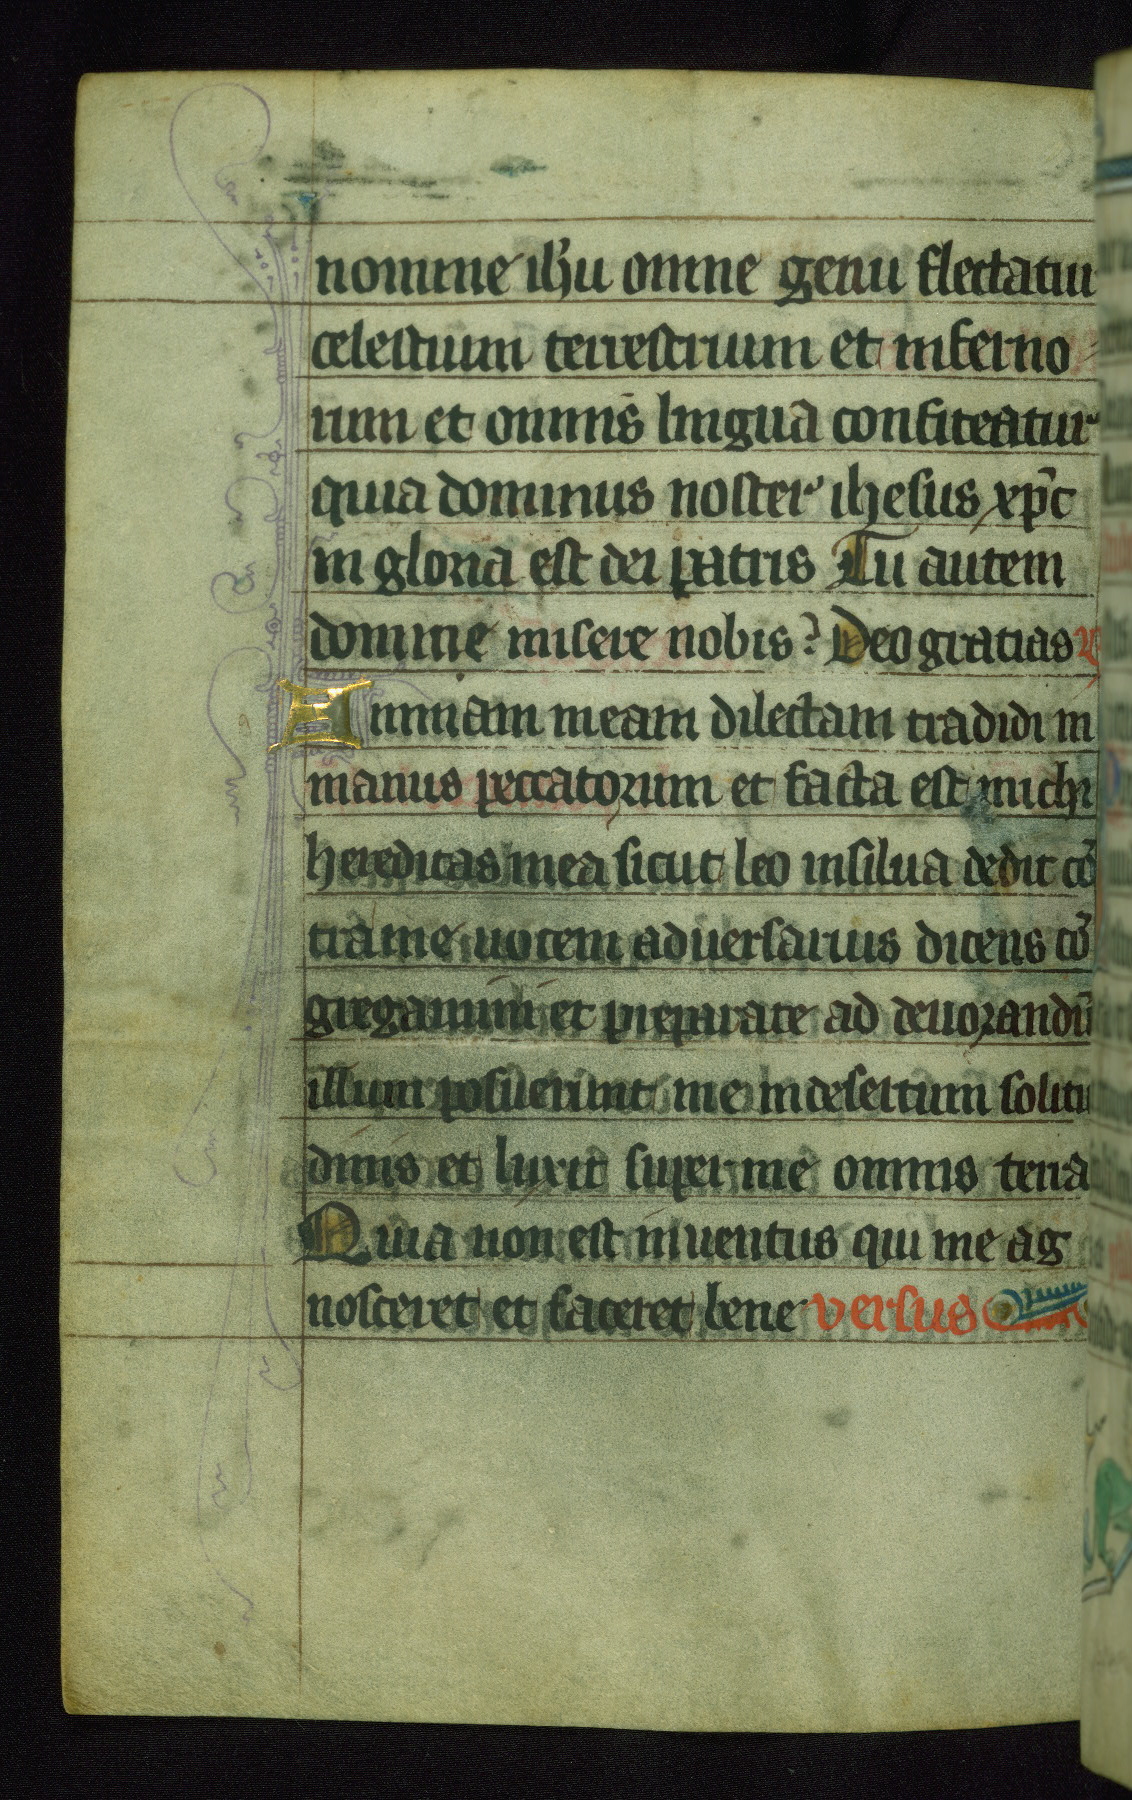 nomine ih'u omne genu flectatur
celestium terrestrium et inferno
rum et omnis lingua confiteatur
quia dominus noster ihesus xp̄c
in gloria est dei patris Tu autem
domine misere nobis? Deo gratias
Animam meam dilectam tradidi in
manus peccatorum et facta est michi
hereditas mea sicut leo insilua dedit cō
tra me uocem aduersarius dicens cō
gregamini et preparate ad deuorandū
illum posuerunt me in desertum solitu
dinis et luxit super me omnis terra
Quia non est inuentus qui me ag
nosceret et faceret bene versus